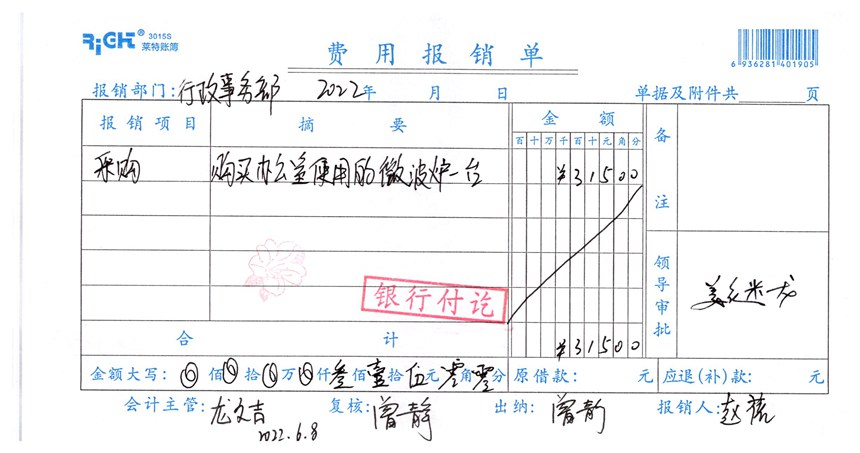 RiGHT 3015S
莱特账簿
费用报销单
6 936281 401905
报销部门：行政事务部 2022年 月 日 单据及附件共 页
报销项目 摘要 金额 备注
百十万千百十元角分
采购 购买办公室使用的微波炉一台 ¥31500
银行付讫
领导审批
合计 ¥31500
金额大写：⓪佰⓪拾⓪万⓪仟叁佰壹拾伍元零角零分 原借款： 元 应退(补)款： 元
会计主管：龙文吉 复核：曾静 出纳：曾静 报销人：赵
2022.6.8